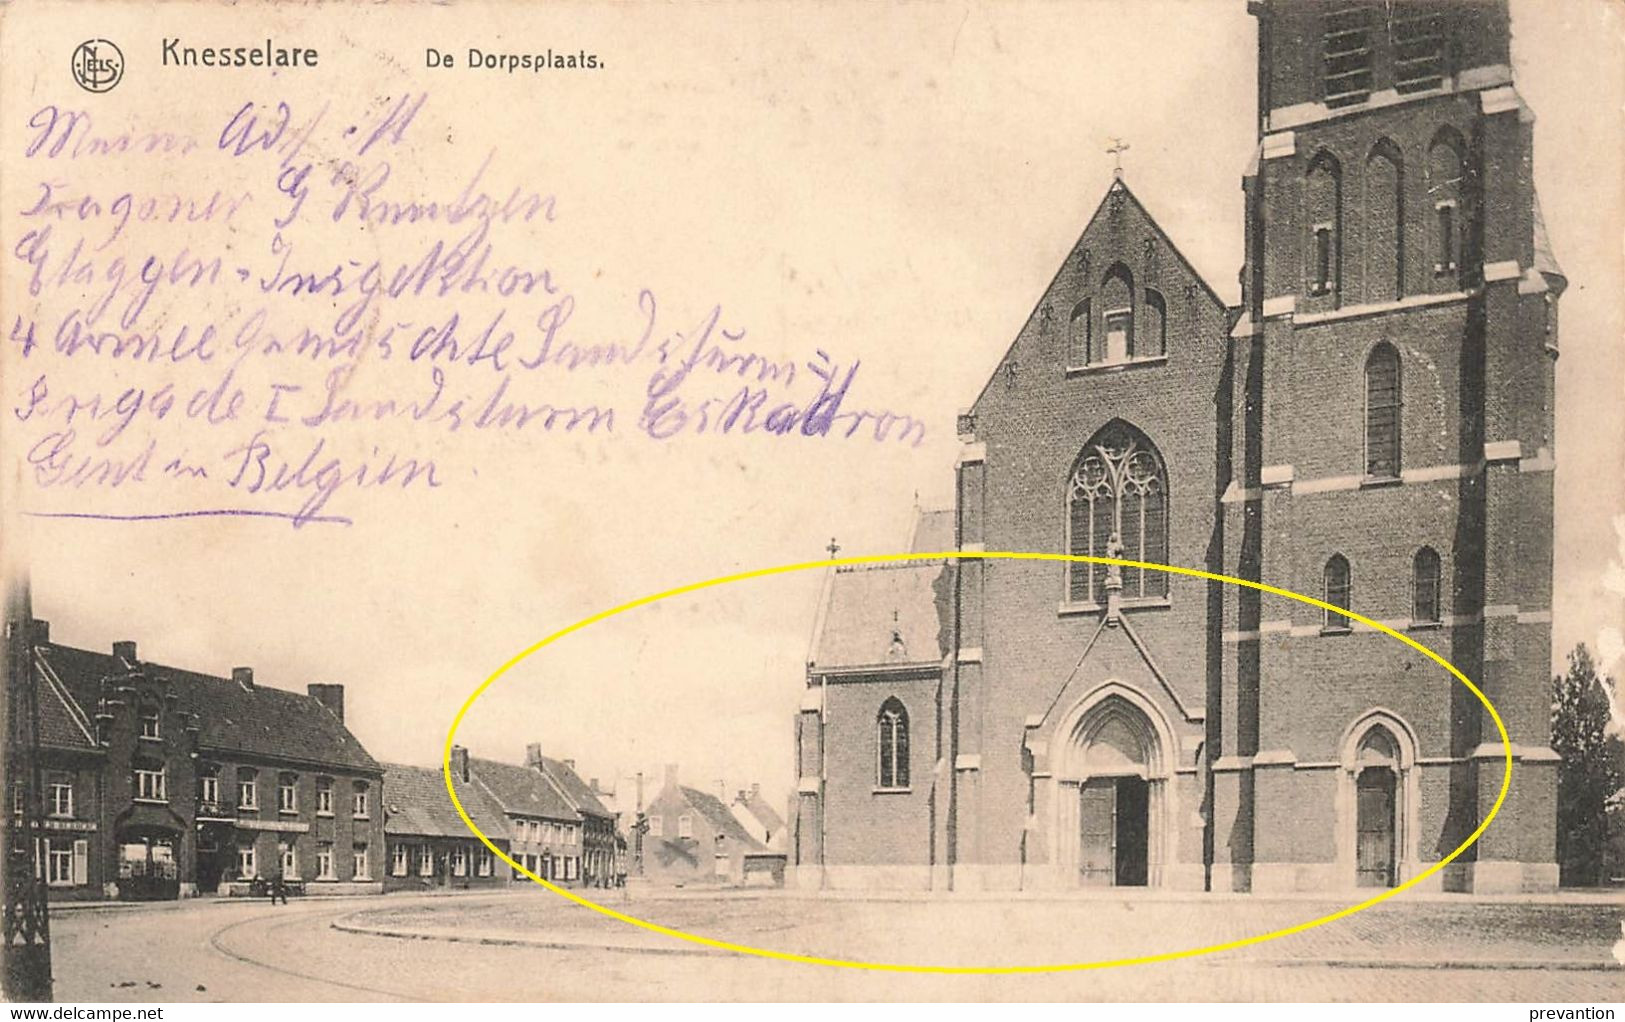 NELS
Knesselare De Dorpsplaats.
Meine Adr ist
Dragoner G
Etappen-Inspektion
4 Armee Gemischte Landsturm
Brigade I Landsturm Eskadron
Gent in Belgien
delcampe.net
prevantion